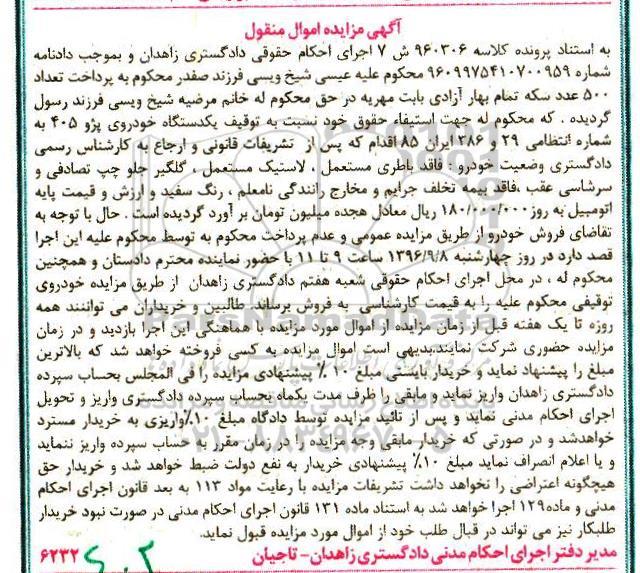 آگهی مزایده اموال منقول
به استناد پرونده کلاسه ۹۶۰۳۰۶ ش ۷ اجرای احکام حقوقی دادگستری زاهدان و بموجب دادنامه
شماره ۹۶۰۹۹۷۵۴۱۰۷۰۰۹۵۹ محکوم علیه عیسی شیخ ویسی فرزند صفدر محکوم به پرداخت تعداد
۵۰۰ عدد سکه تمام بهار آزادی بابت مهریه در حق محکوم له خانم مرضیه شیخ ویسی فرزند رسول
گردیده ، که محکوم له جهت استیفاء حقوق خود نسبت به توقیف یکدستگاه خودروی پژو ۴۰۵ به
شماره انتظامی ۲۹ و ۳۸۶ ایران ۸۵ اقدام که پس از تشریفات قانونی و ارجاع به کارشناس رسمی
دادگستری وضعیت خودرو : فاقد باطری مستعمل ، لاستیک مستعمل ، گلگیر جلو چپ تصادفی و
سرشاسی عقب ،فاقد بیمه تخلف جرایم و مخارج رانندگی نامعلم ، رنگ سفید و ارزش و قیمت پایه
اتومبیل به روز ۱۸۰/۰۰۰/۰۰۰ ریال معادل هجده میلیون تومان بر آورد گردیده است . حال با توجه به
تقاضای فروش خودرو از طریق مزایده عمومی و عدم پرداخت محکوم به توسط محکوم علیه این اجرا
قصد دارد در روز چهارشنبه ۱۳۹۶/۹/۸ ساعت ۹ تا ۱۱ با حضور نماینده محترم دادستان و همچنین
محکوم له ، در محل اجرای احکام حقوقی شعبه هفتم دادگستری زاهدان از طریق مزایده خودروی
توقیفی محکوم علیه را به قیمت کارشناسی به فروش برساند. طالبین و خریداران می توانند همه
روزه تا یک هفته قبل از زمان مزایده از اموال مورد مزایده با هماهنگی این اجرا بازدید و در زمان
مزایده حضوری شرکت نمایند.بدیهی است اموال مزایده به کسی فروخته خواهد شد که بالاترین
مبلغ را پیشنهاد نماید و خریدار بایستی مبلغ ۱۰ ٪ پیشنهادی مزایده را فی المجلس بحساب سپرده
دادگستری زاهدان واریز نماید و مابقی را ظرف مدت یکماه بحساب سپرده دادگستری واریز و تحویل
اجرای احکام مدنی نماید و پس از تائید مزایده توسط دادگاه مبلغ ۱۰٪واریزی به خریدار مسترد
خواهدشد و در صورتی که خریدار مابقی وجه مزایده را در زمان مقرر به حساب سپرده واریز ننماید
و یا اعلام انصراف نماید مبلغ ۱۰٪ پیشنهادی خریدار به نفع دولت ضبط خواهد شد و خریدار حق
هیچگونه اعتراضی را نخواهد داشت تشریفات مزایده با رعایت مواد ۱۱۳ به بعد قانون اجرای احکام
مدنی و ماده۱۲۹ اجرا خواهد شد به استناد ماده ۱۳۱ قانون اجرای احکام مدنی در صورت نبود خریدار
طلبکار نیز می تواند در قبال طلب خود از اموال مورد مزایده قبول نماید.
مدیر دفتر اجرای احکام مدنی دادگستری زاهدان- تاجیان ۶۲۳۲